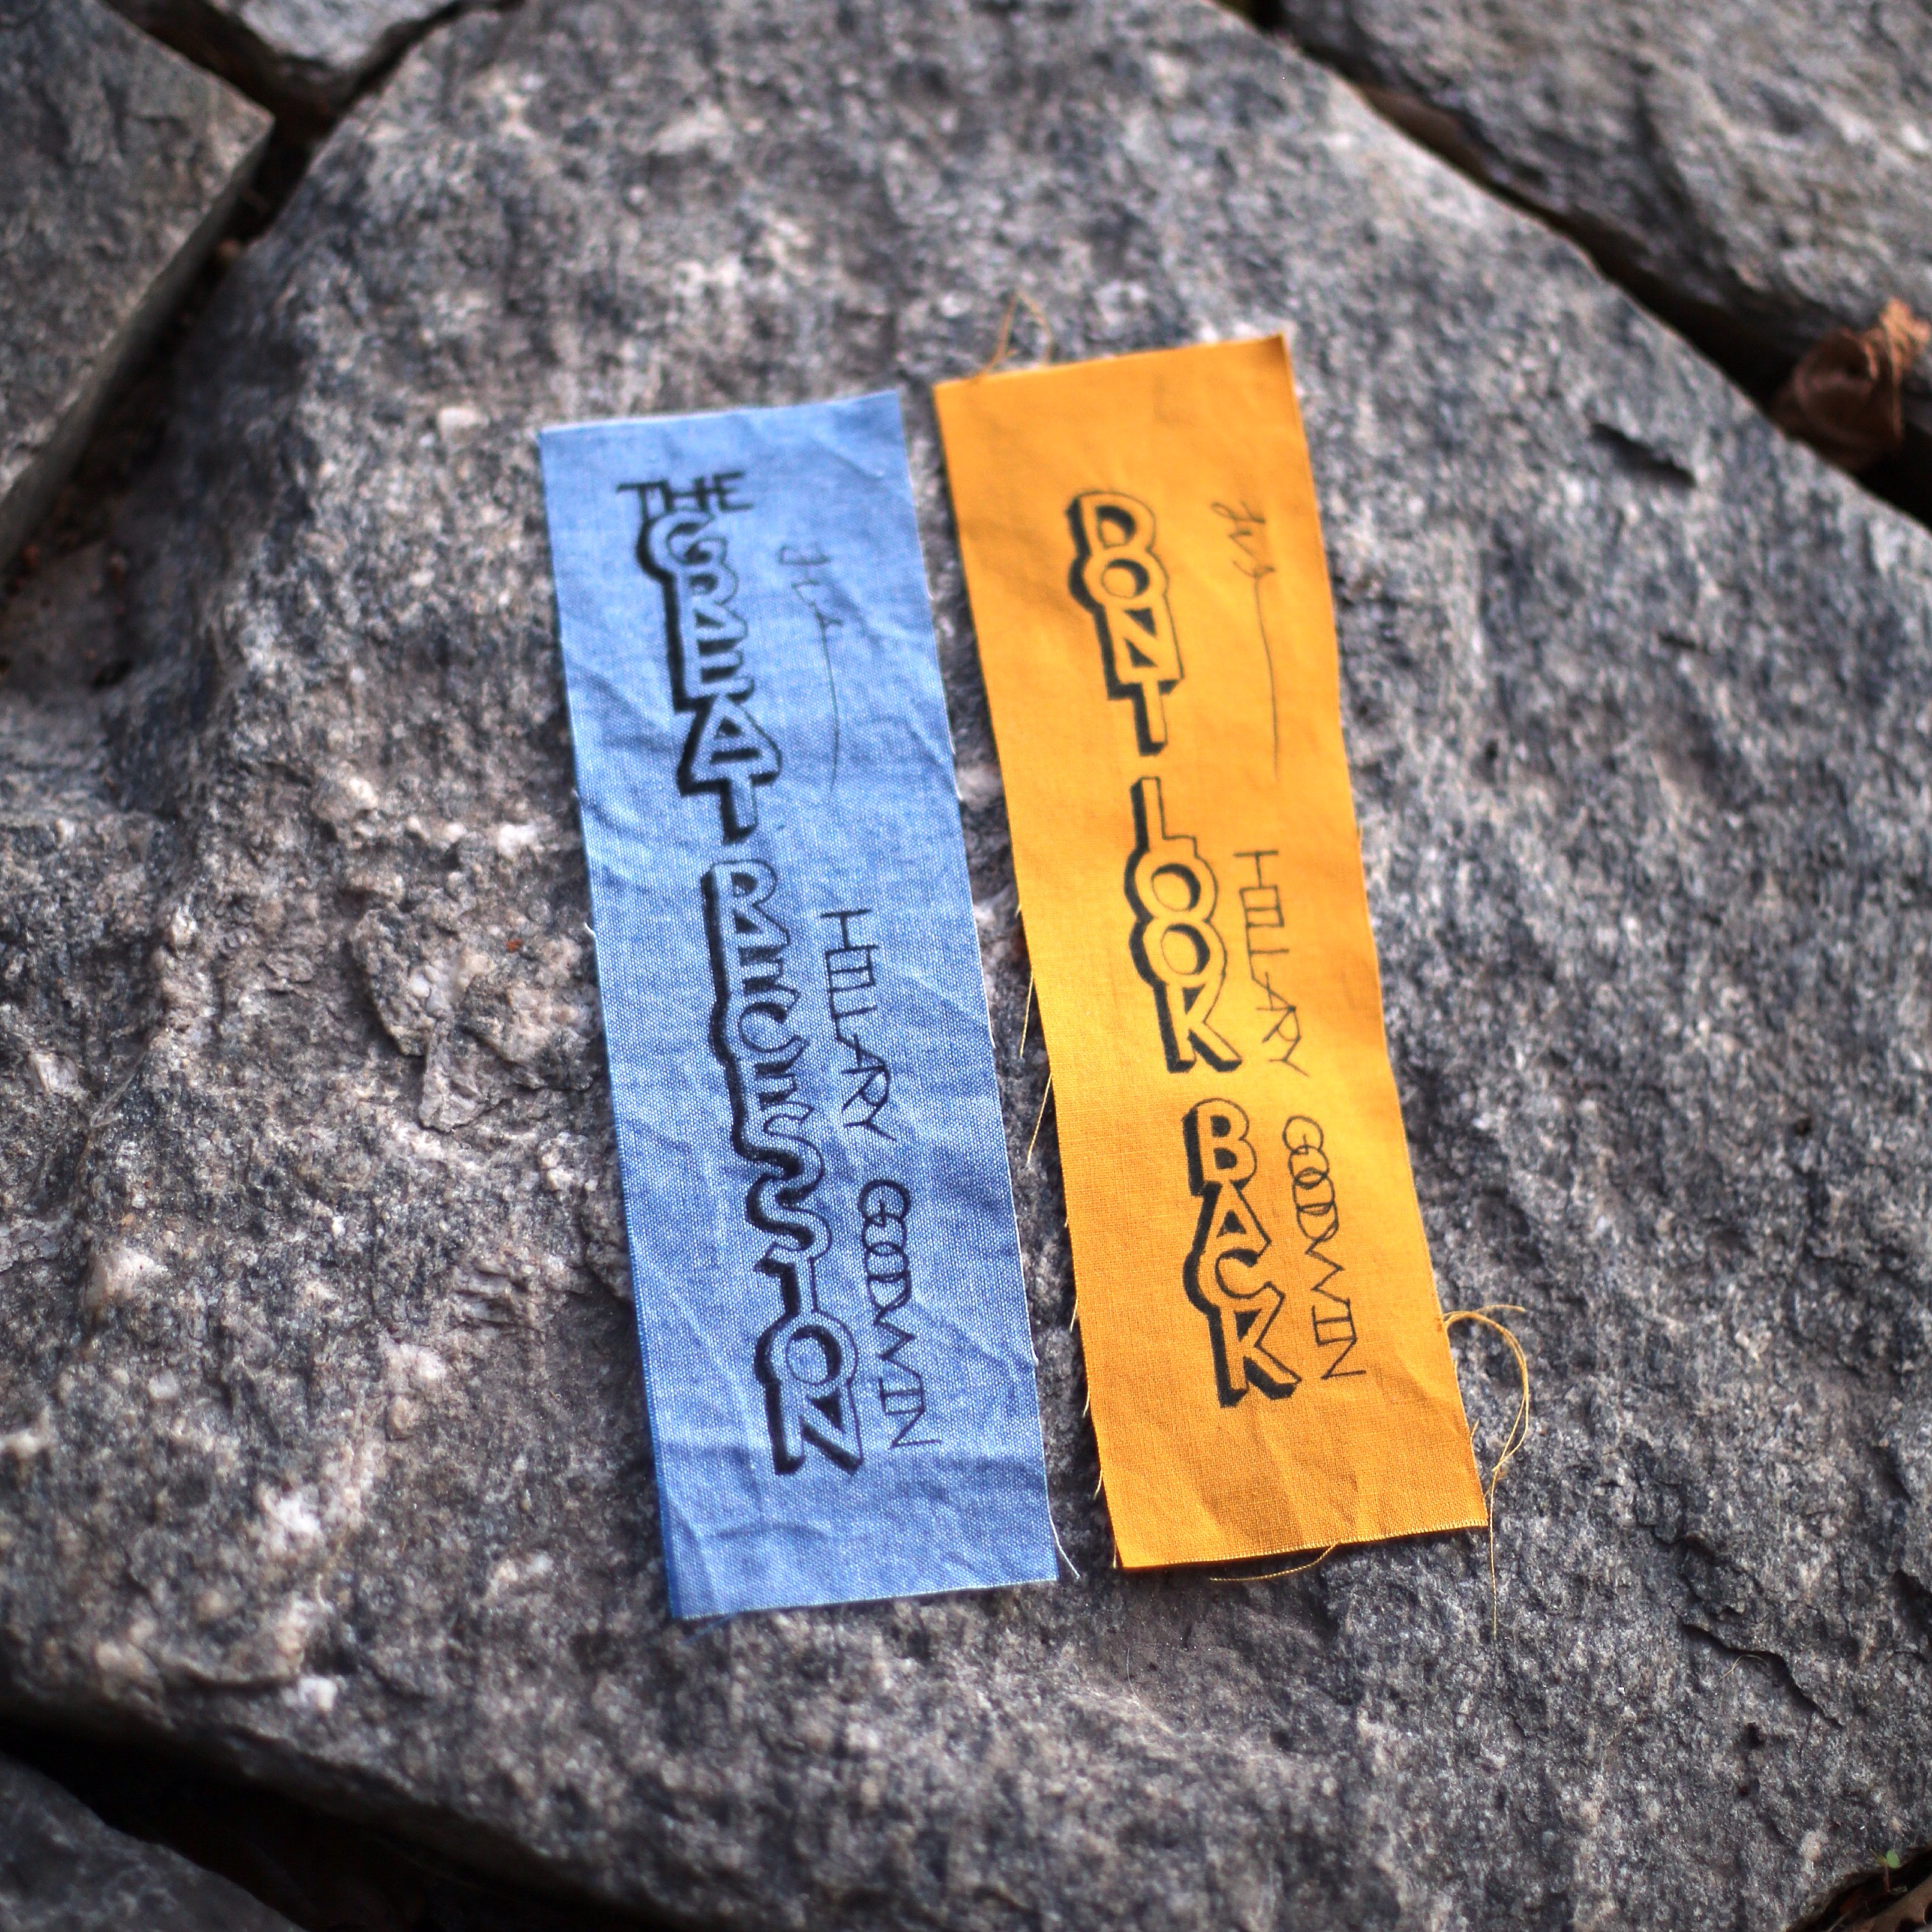 THE GREAT RECESSION
HILLARY GOODWIN
DONT LOOK BACK
HILLARY GOODWIN